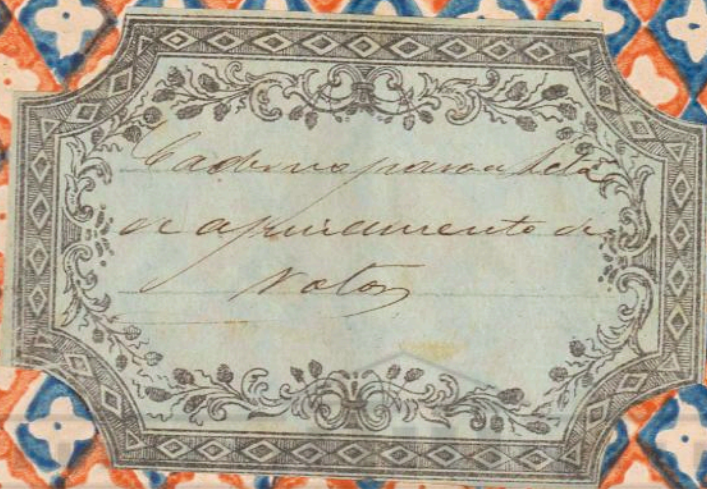 Caderno para a Acta
de apuramento de
Votos